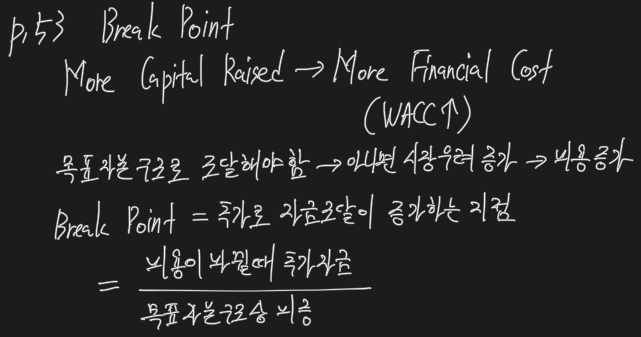 p.53 Break Point
More Capital Raised → More Financial Cost
(WACC↑)
목표자본구조로 조달해야함 → 아니면 시장우려 증가 → 비용증가
Break Point = 추가로 자금조달이 증가하는 지점
= 비용이 바뀔때 추가자금
목표자본구조상 비중